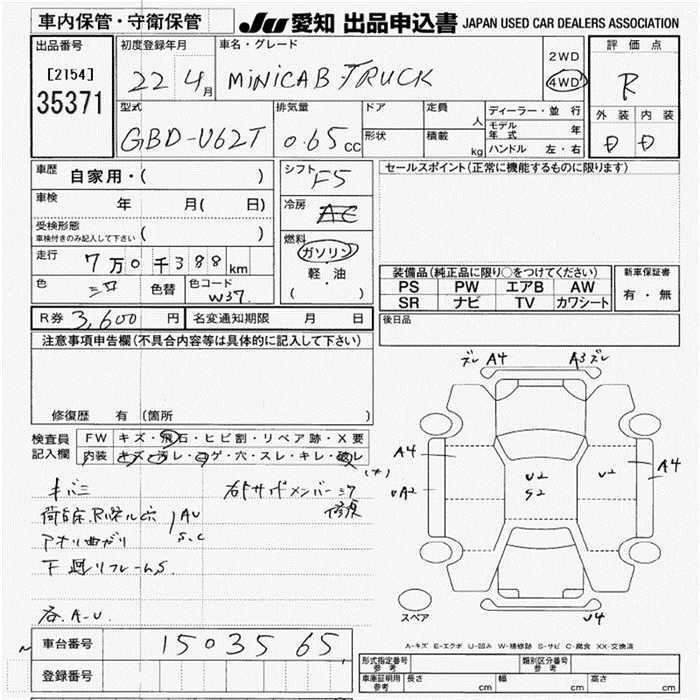 車内保管・守衛保管
JU 愛知 出品申込書 JAPAN USED CAR DEALERS ASSOCIATION
出品番号
[2154]
35371
初度登録年月
22 4月
車名・グレード
MINICAB・TRUCK
2WD
4WD
評価点
R
外装 内装
D D
型式
GBD-U62T
排気量
0.65cc
ドア
形状
定員
人
積載
kg
ディーラー・並行
モデル年式 年
ハンドル 左・右
車歴
自家用・( )
車検
年 月( 日)
受検形態
車検付きのみ記入して下さい ( )
走行
7万0千388km
色
色替
色コード
W37
シフト
F5
冷房
AC
燃料
ガソリン
軽油
( ・ )
セールスポイント(正常に機能するものに限ります)
装備品(純正品に限り○をつけてください)
PS PW エアB AW
SR ナビ TV カワシート
新車保証書
有・無
R券 3,600円
名変通知期限 月 日
後日品
注意事項申告欄(不具合内容等は具体的に記入して下さい)
修復歴 有 (箇所 )
検査員記入欄
FW キズ・飛石・ヒビ割・リペア跡・X要
内装 キズ・汚レ・コゲ・穴・スレ・キレ・破レ
キバミ
アオリ曲ガリ
AU
S.C
下廻リフレームS.
各A-U.
ズレ A4
A3 ズレ
A4
A4
UA2
U2
S2
U2
U4
スペア
A-キズ E-エクボ U-凹み W-補修跡 S-サビ C-腐食 XX-交換済
車台番号
1503565
登録番号
形式指定番号
参考
類別区分番号
参考
車庫証明用
参考
長さ cm
幅 cm
高さ cm